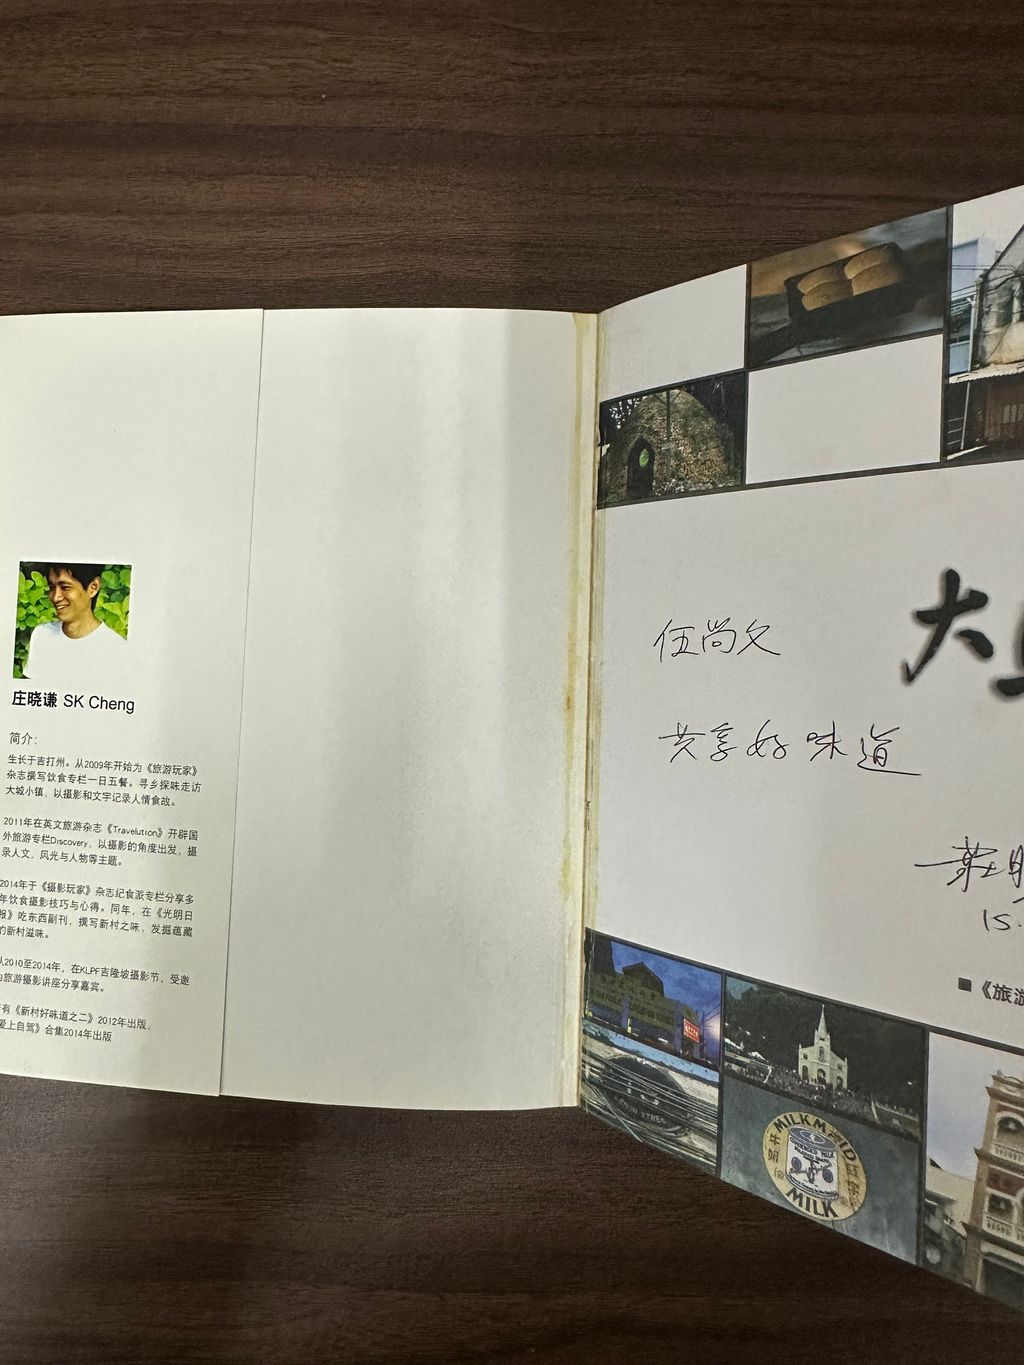 庄晓谦 SK Cheng
简介：
生长于吉打州。从2009年开始为《旅游玩家》
杂志撰写饮食专栏一日五餐。寻乡探味走访
大城小镇，以摄影和文字记录人情食故。
2011年在英文旅游杂志《Travelution》开辟国
外旅游专栏Discovery，以摄影的角度出发，摄
录人文，风光与人物等主题。
2014年于《摄影玩家》杂志纪食派专栏分享多
年饮食摄影技巧与心得。同年，在《光明日
报》吃东西副刊，撰写新村之味，发掘蕴藏
的新村滋味。
从2010至2014年，在KLPF吉隆坡摄影节，受邀
为旅游摄影讲座分享嘉宾。
有《新村好味道之二》2012年出版，
爱上自驾》合集2014年出版
大
伍尚文
共享好味道
莊
15.
■《旅游
MILKMAID
MILK